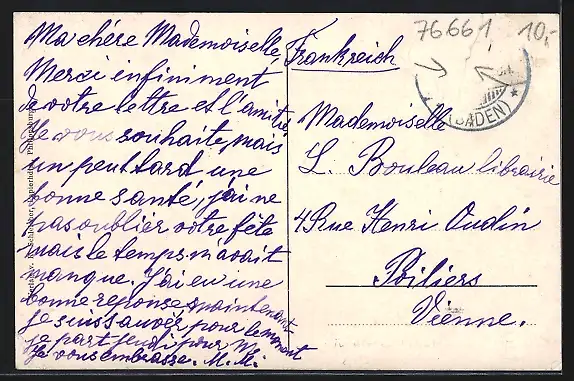 Ma chère Mademoiselle,
Merci infiniment
de votre lettre et l'amitié
Je vous souhaite, mais
un peut tard une
bonne santé, j'ai ne
pas oublier votre fête
mais le temps m'avait
manque. J'ai eu une
bonne reponse maintenant
je suis sauvér pour le moment
je part jeudi pour M.
Je vous embrasse. M. M.
Frankreich
76661 10,-
(BADEN)
Mademoiselle
L. Bouleau librairie
4 Rue Henri Oudin
Poitiers
Vienne.